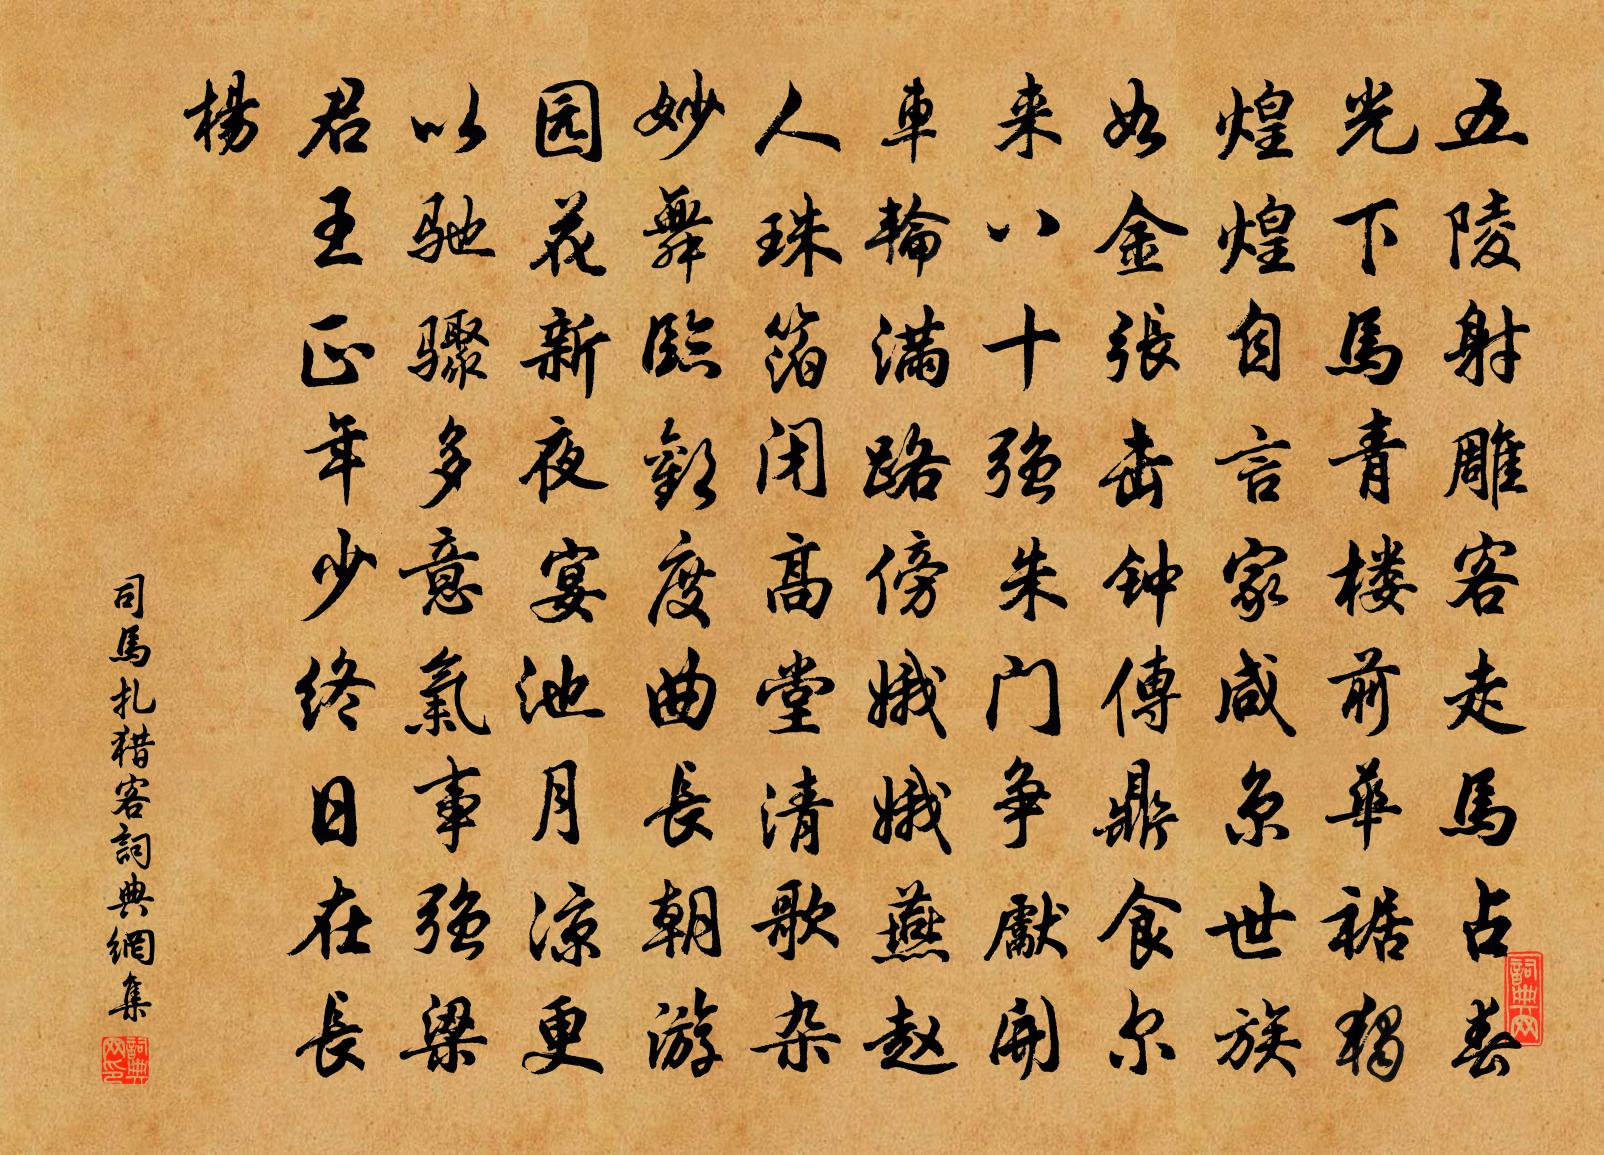 五陵射雕客走马占春
光下馬青楼前華裾獨
煌煌自言家咸京世族
如金張击钟傳鼎食尔
来八十强朱门争獻開
車輪满路傍娥娥燕赵
人珠箔闭高堂清歌杂
妙舞臨歡度曲長朝游
园花新夜宴池月凉更
以驰骤多意氣事强梁
君王正年少终日在長
楊
司馬扎猎客詞典網集
詞典网
詞典网印